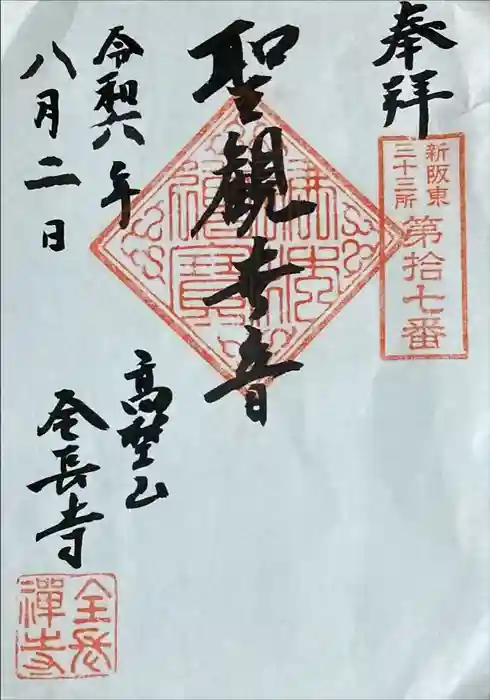 奉拝
新阪東
三十三所
第拾七番
聖観世音
佛法
僧寶
令和六年
八月二日
高埜山
全長寺
全長
禪寺